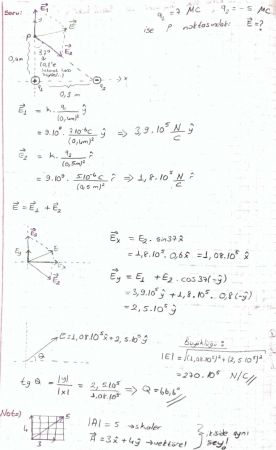 Soru:
E⃗₁
q₁ = 7 μC    q₂ = -5 μC
ise P noktasındaki E⃗ = ?
P
E⃗
E⃗₂
37°
0,4m
q₁
q₂
x
0,3 m
E⃗₁ = k. q₁/(0,4m)² ŷ
= 9.10⁹. 7.10⁻⁶C/(0,4m)² ŷ ⇒ 3,9.10⁵ N/C ŷ
E⃗₂ = k. q₂/(0,5m)² r̂
= 9.10⁹. 5.10⁻⁶C/(0.5m)² r̂ ⇒ 1,8.10⁵ N/C r̂
E⃗ = E⃗₁ + E⃗₂
E⃗x = E₂. sin37 x̂
= 1,8.10⁵. 0,6 x̂ = 1,08.10⁵ x̂
E⃗y = E₁ + E₂.cos37(-ŷ)
= 3,9.10⁵ ŷ + 1,8.10⁵. 0,8(-ŷ)
= 2,5.10⁵ ŷ
E = 1,08.10⁵ x̂ + 2,5.10⁵ ŷ
Büyüklüğü:
|E| = √(1,08.10⁵)² + (2,5.10⁵)²
= 270.10³ N/C
tg θ = |y|/|x| = 2,5.10⁵/1,08.10⁵ ⇒ θ = 66,6°
Not:
|A| = 5 → skaler
A⃗ = 3x̂ + 4ŷ → vektörel
ikiside aynı
şey!
4
5
3